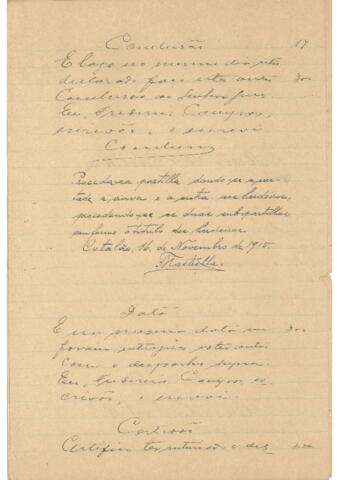 Conclusão 17
E logo no mesmo dia, retro
declarado, faço estes autos dos
Conclusos ao Senhor Juiz
Eu, Campos,
escrivão, o escrevi
Conclusos
Proceda-se a partilha, dando-se a me-
tade á viuva e a outra aos herdeiros,
procedendo-se as duas subpartilhas
conforme o titulo dos herdeiros.
Catalão, 16 de Novembro de 1915.
Data
E na mesma data me dos
foram entregues estes autos
com o despacho supra.
Eu, Campos, es-
crivão, o escrevi.
Certidão
Certifico ter intimado o des-